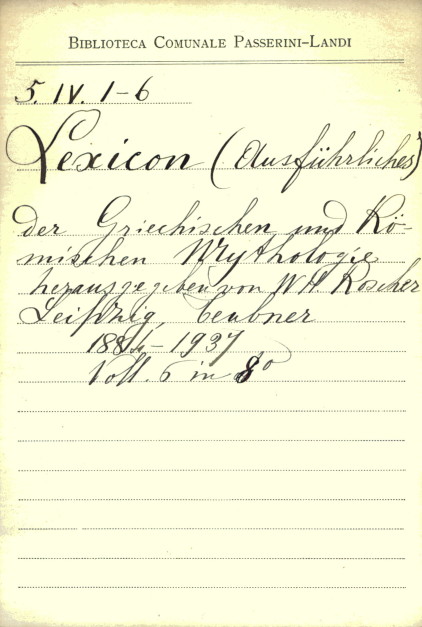 BIBLIOTECA COMUNALE PASSERINI-LANDI
5. IV. 1-6
Lexicon (Ausführliches)
der Griechischen und Rö-
mischen Mythologie
herausgegeben von W H Roscher
Leipzig, Teubner
1884-1937
Voll. 6 in 8º